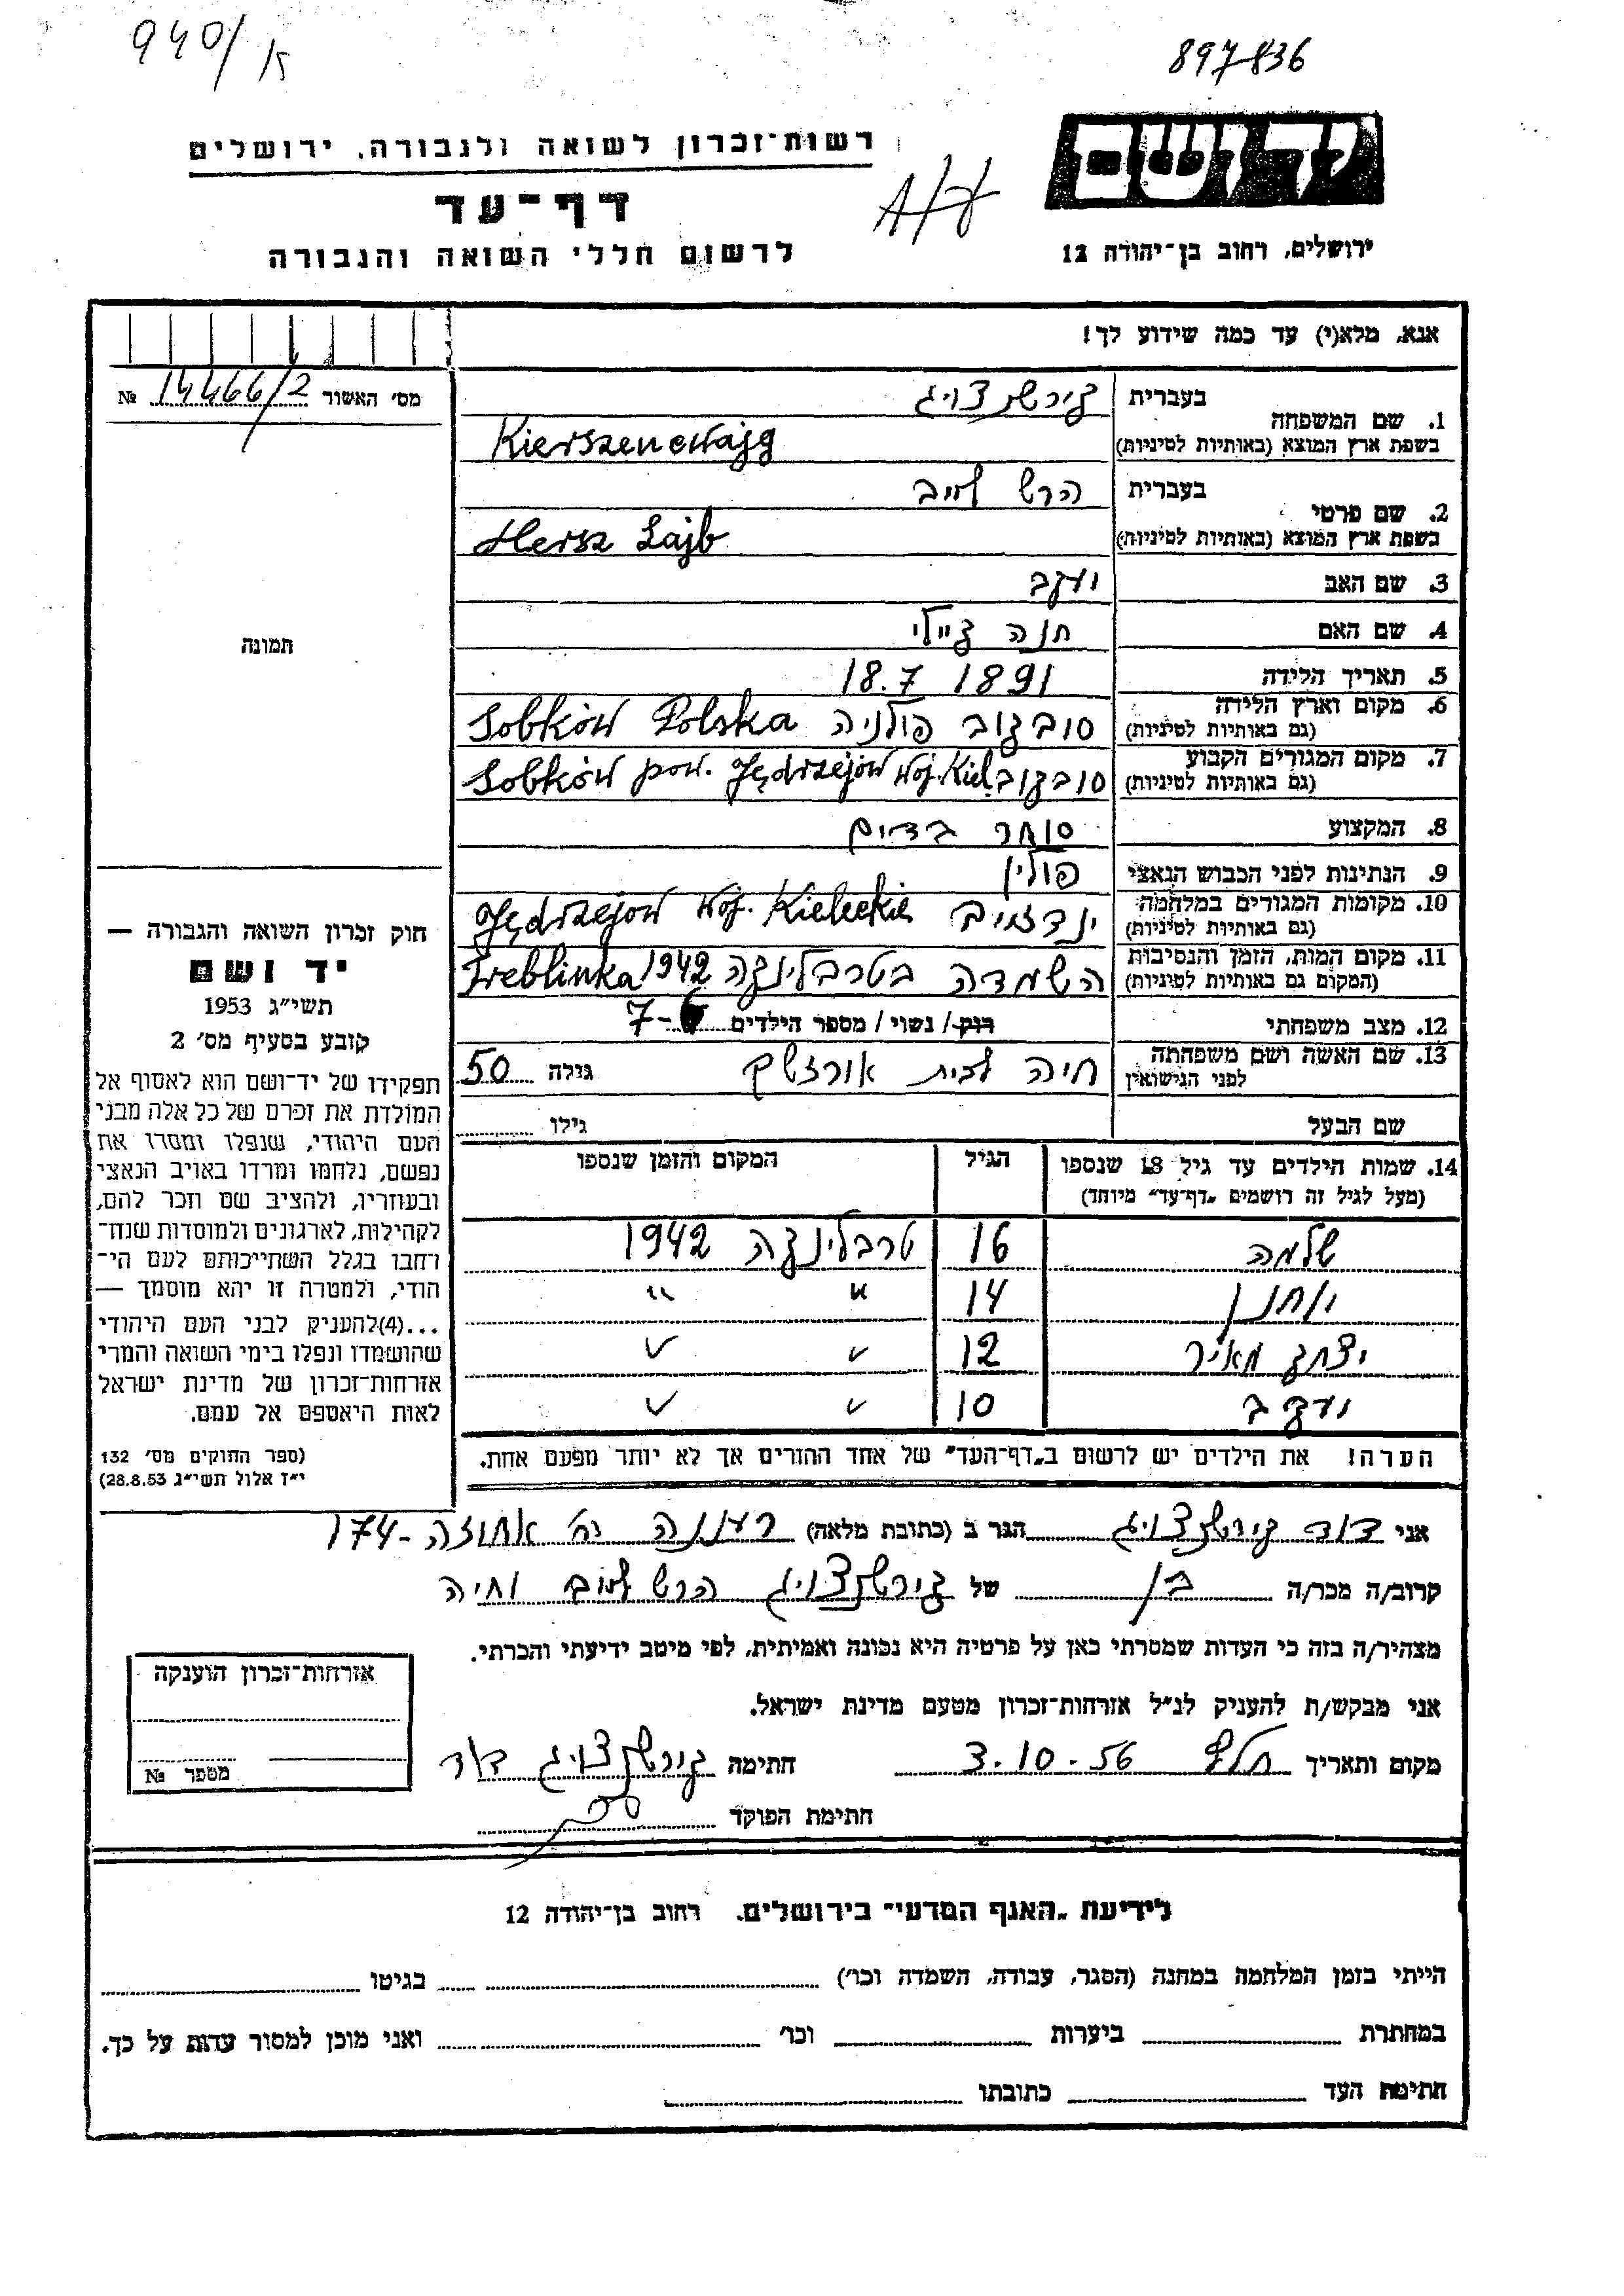 940/ק
897436
רשות־זכרון לשואה ולגבורה, ירושלים
יד ושם
דף־עד
לרשום חללי השואה והגבורה
ירושלים, רחוב בן־יהודה 12
אנא, מלא(י) עד כמה שידוע לך!
מס׳ האשור 14466/2 №
1. שם המשפחה בעברית קירשנצויג
בשפת ארץ המוצא (באותיות לטיניות) Kierszencwajg
2. שם פרטי בעברית הרש לייב
בשפת ארץ המוצא (באותיות לטיניות) Hersz Lajb
3. שם האב יעקב
4. שם האם חנה קיילי
5. תאריך הלידה 18.7 1891
6. מקום וארץ הלידה (גם באותיות לטיניות) סובקוב פולניה Sobków Polska
7. מקום המגורים הקבוע (גם באותיות לטיניות) סובקוב Sobków pow. Jędrzejów woj. Kiel.
8. המקצוע סוחר בדים
9. הנתינות לפני הכבוש הנאצי פולין
10. מקומות המגורים במלחמה (גם באותיות לטיניות) Jędrzejów woj. Kieleckie
11. מקום המות, הזמן והנסיבות (המקום גם באותיות לטיניות) השמדה בטרבלינקה 1942 Treblinka
12. מצב משפחתי רוק/ נשוי/ מספר הילדים 7
13. שם האשה ושם משפחתה לפני הנישואין חיה לבית גילה 50
שם הבעל גילו
14. שמות הילדים עד גיל 18 שנספו (מעל לגיל זה רושמים „דף־עד״ מיוחד) הגיל המקום והזמן שנספו
שלמה 16 טרבלינקה 1942
יוחנן 14 " "
יצחק מאיר 12 ״ ״
יעקב 10 ״ ״
הערה! את הילדים יש לרשום ב„דף־העד״ של אחד ההורים אך לא יותר מפעם אחת.
תמונה
חוק זכרון השואה והגבורה —
יד ושם
תשי״ג 1953
קובע בסעיף מס׳ 2
תפקידו של יד־ושם הוא לאסוף אל
המולדת את זכרם של כל אלה מבני
העם היהודי, שנפלו ומסרו את
נפשם, נלחמו ומרדו באויב הנאצי
ובעוזריו, ולהציב שם וזכר להם,
לקהילות, לארגונים ולמוסדות שנח־
רחבו בגלל השתייכותם לעם הי־
הודי, ולמטרה זו יהא מוסמך —
...(4)להעניק לבני העם היהודי
שהושמדו ונפלו בימי השואה והמרי
אזרחות־זכרון של מדינת ישראל
לאות היאספם אל עמם.
(ספר החוקים מס׳ 132
י״ז אלול תשי״ג 28.8.53)
אני דוד קירשנצויג הגר ב (כתובת מלאה) רעננה רח׳ אחוזה 174
קרוב/ה מכר/ה בן של קירשנצויג הרש לייב וחיה
מצהיר/ה בזה כי העדות שמסרתי כאן על פרטיה היא נכונה ואמיתית, לפי מיטב ידיעתי והכרתי.
אני מבקש/ת להעניק לנ״ל אזרחות־זכרון מטעם מדינת ישראל.
מקום ותאריך 3.10.56 חתימה קירשנצויג דוד
חתימת הפוקד
אזרחות־זכרון הוענקה
מספר №
לידיעת „האגף המדעי״ בירושלים, רחוב בן־יהודה 12
הייתי בזמן המלחמה במחנה (הסגר, עבודה, השמדה וכו׳) בגיטו
במחתרת ביערות וכו׳ ואני מוכן למסור עדות על כך.
חתימת העד כתובתו